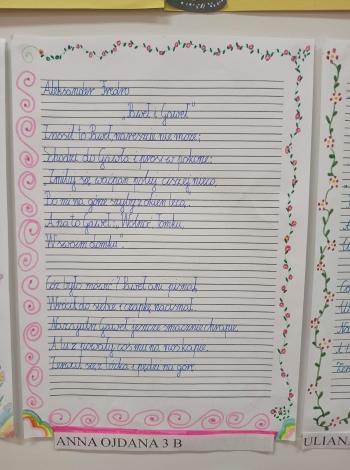 Aleksander Fredro
„Paweł i Gaweł"
Znosił to Paweł nareszcie nie może;
Schodzi do Gawła i prosi w pokorze:
„Zmiłuj się waćpan poluj ciszej nieco,
Bo mi na górze szyby z okien lecą."
A na to Gaweł: „Wolnoć Tomku,
W swoim domku".
Cóż było mówić? Paweł ani pisnął,
Wrócił do siebie i czapkę nacisnął.
Nazajutrz Gaweł jeszcze smacznie chrapie,
A tu z powały coś mu na nos kapie.
Zerwał się z łóżka i pędzi na górę.
ANNA OJDANA 3 B
ULIANA